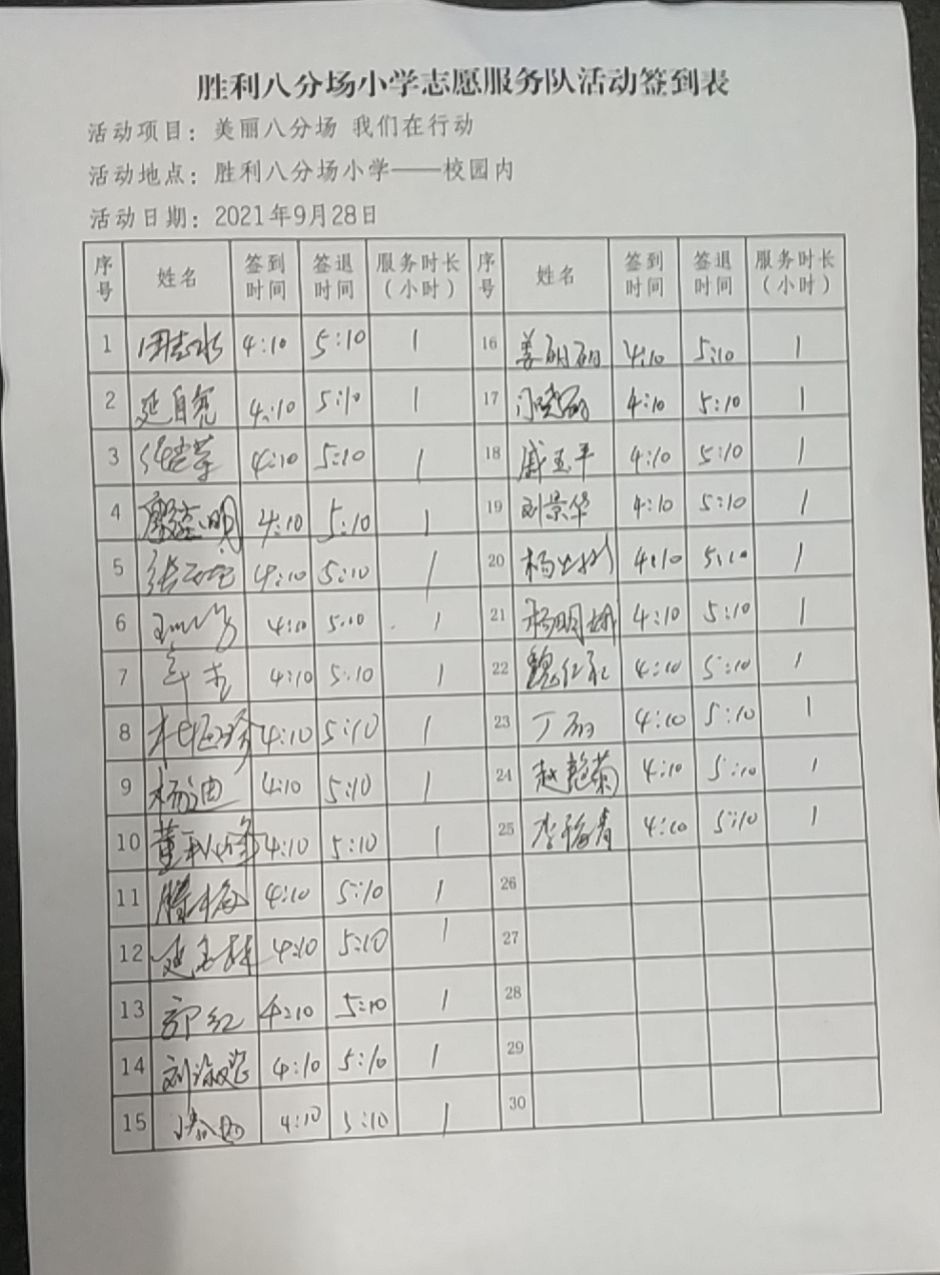 胜利八分场小学志愿服务队活动签到表
活动项目：美丽八分场 我们在行动
活动地点：胜利八分场小学——校园内
活动日期：2021年9月28日
序号 姓名 签到时间 签退时间 服务时长（小时） 序号 姓名 签到时间 签退时间 服务时长（小时）
1 4:10 5:10 1 16 姜丽丽 4:10 5:10 1
2 延自亮 4:10 5:10 1 17 4:10 5:10 1
3 4:10 5:10 1 18 戚玉平 4:10 5:10 1
4 4:10 5:10 1 19 刘景华 4:10 5:10 1
5 4:10 5:10 1 20 4:10 5:10 1
6 4:10 5:10 1 21 杨明 4:10 5:10 1
7 4:10 5:10 1 22 魏红 4:10 5:10 1
8 4:10 5:10 1 23 丁丽 4:10 5:10 1
9 杨迪 4:10 5:10 1 24 赵艳菊 4:10 5:10 1
10 董秋 4:10 5:10 1 25 李 青 4:10 5:10 1
11 滕 梅 4:10 5:10 1 26
12 延 4:10 5:10 1 27
13 郭红 4:10 5:10 1 28
14 刘淑 4:10 5:10 1 29
15 4:10 5:10 1 30